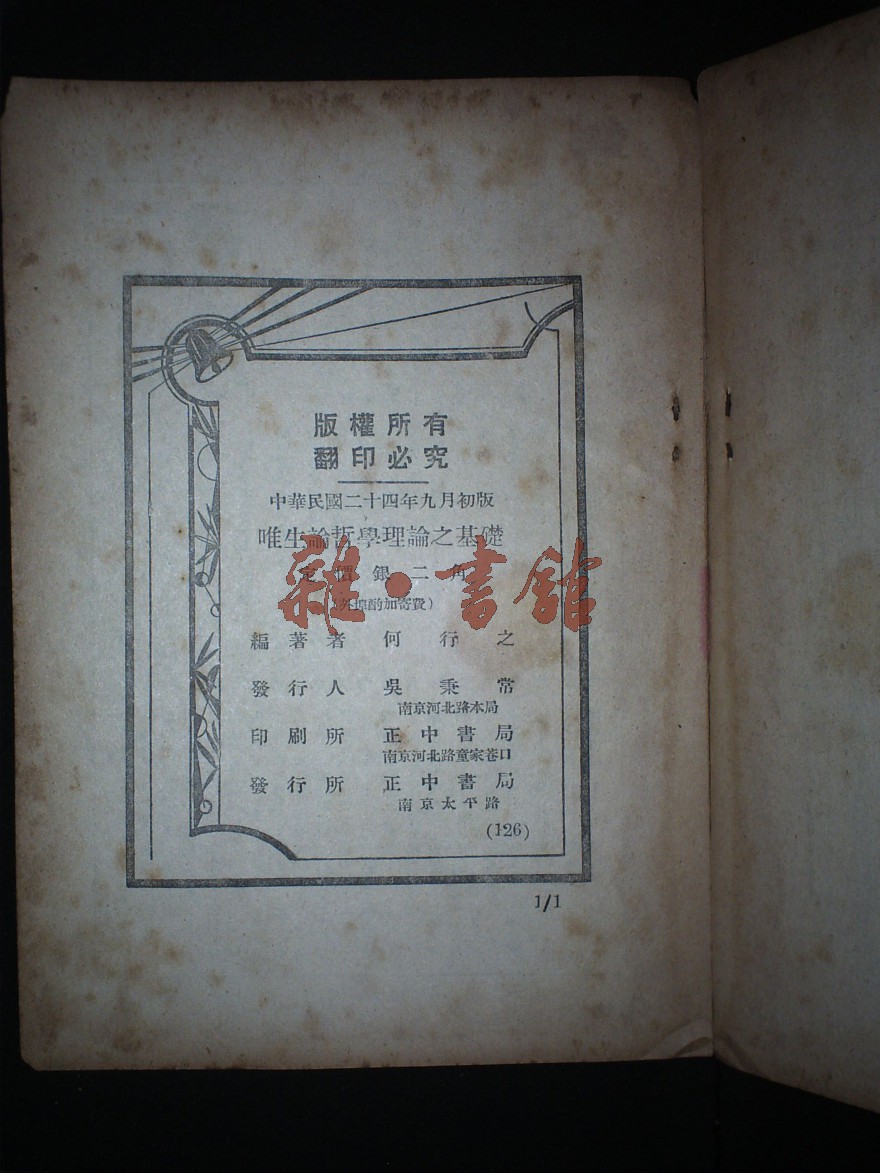 版權所有
翻印必究
中華民國二十四年九月初版
唯生論哲學理論之基礎
定價銀二角
(外埠酌加寄費)
編著者 何行之
發行人 吳秉常
南京河北路本局
印刷所 正中書局
南京河北路童家巷口
發行所 正中書局
南京太平路
(126)
1/1
雜·書館